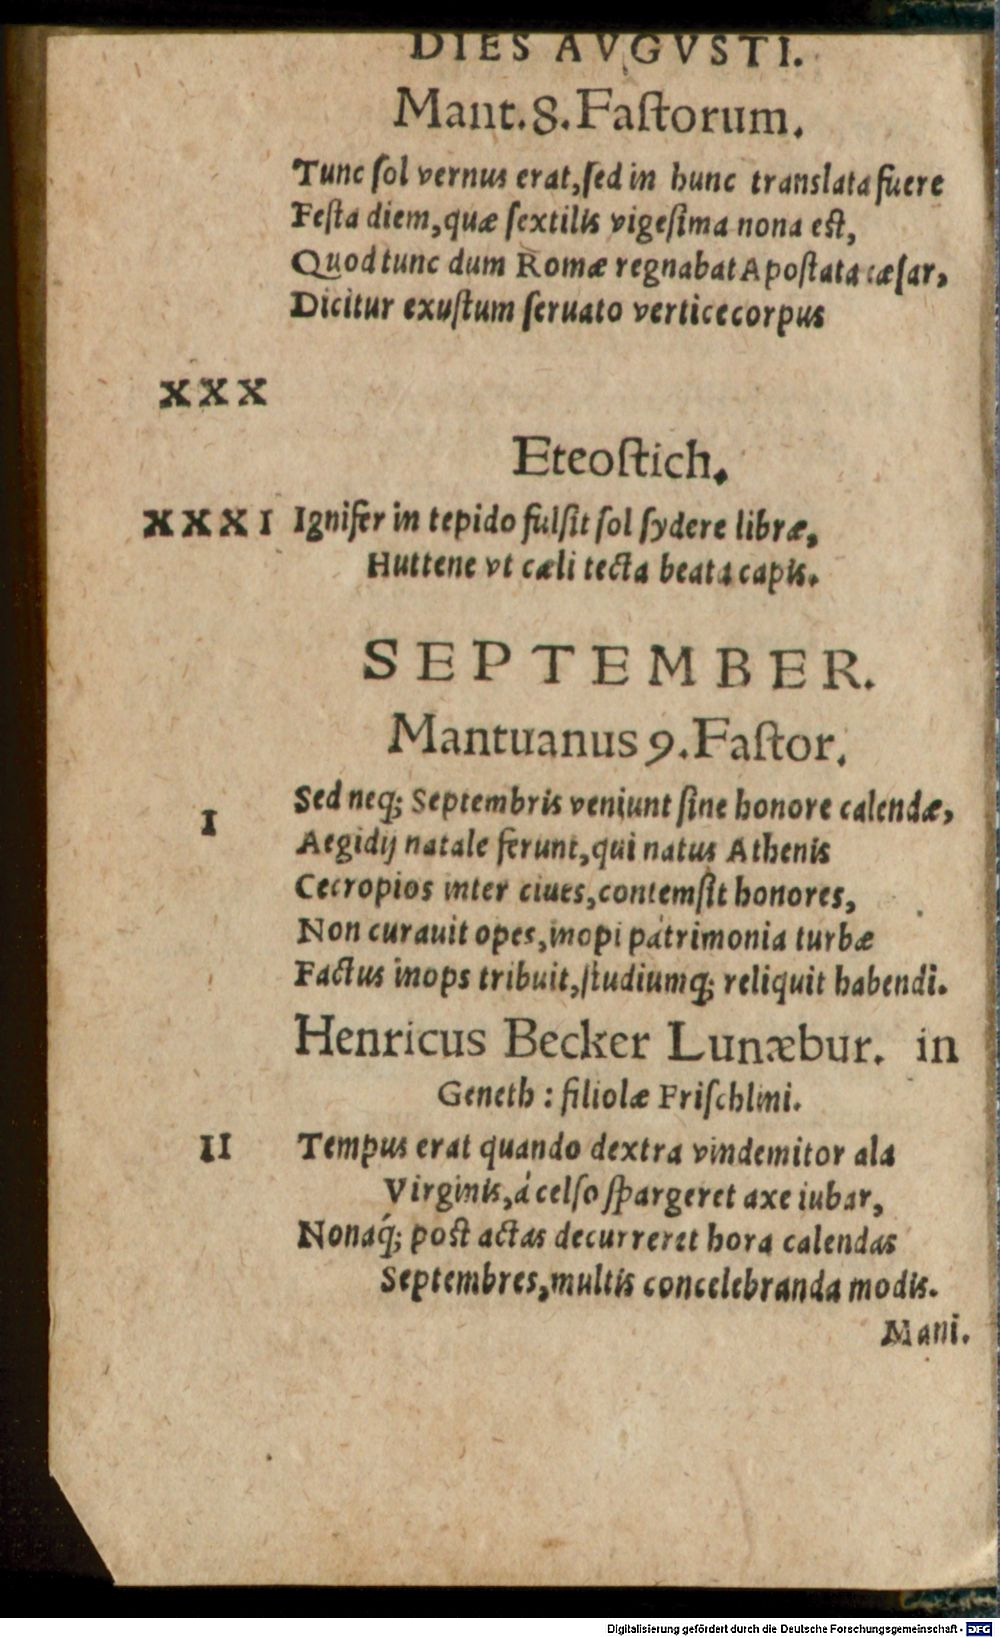 DIES AVGVSTI.
Mant. 8. Faſtorum.
Tunc ſol vernus erat, ſed in hunc translata fuere
Feſta diem, quæ ſextilis vigeſima nona eſt,
Quod tunc dum Romæ regnabat Apoſtata cæſar,
Dicitur exuſtum ſeruato vertice corpus
XXX
Eteoſtich.
XXXI Ignifer in tepido fulſit ſol ſydere libræ,
Huttene vt cæli tecta beata capis.
SEPTEMBER.
Mantuanus 9. Faſtor.
I Sed neq; Septembris veniunt ſine honore calendæ,
Aegidij natale ferunt, qui natus Athenis
Cecropios inter ciues, contemſit honores,
Non curauit opes, inopi patrimonia turbæ
Factus inops tribuit, ſtudiumq; reliquit habendi.
Henricus Becker Lunæbur. in
Geneth: filiolæ Friſchlini.
II Tempus erat quando dextra vindemitor ala
Virginis, á celſo ſpargeret axe iubar,
Nonaq́; poſt actas decurreret hora calendas
Septembres, multis concelebranda modis.
Mani.
Digitalisierung gefördert durch die Deutsche Forschungsgemeinschaft - DFG